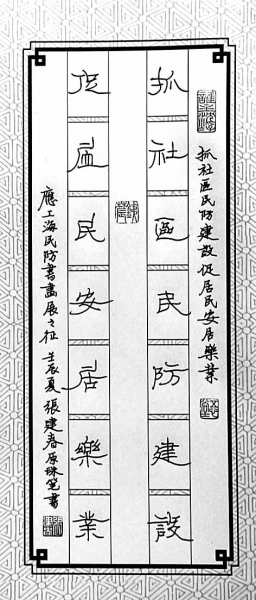 抓社區民防建設促居民安居樂業
抓社區民防建設
促居民安居樂業
應上海民防書畫展之征 壬辰夏 張建春原珠笔書